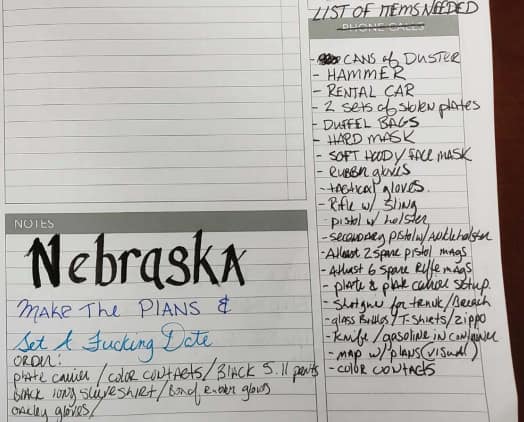 LIST OF ITEMS NEEDED
PHONE CALLS
- CANS of DUSTER
- HAMMER
- RENTAL CAR
- 2 sets of stolen plates
- DUFFEL BAGS
- HARD MASK
- SOFT HOODY/FACE MASK
- RUBBER gloves
- tactical gloves.
- Rifle w/ Sling
pistol w/ holster
- secondary pistol w/ Ankle holster
- Atleast 2 spare pistol mags
- Atleast 6 spare Rifle mags
- plate & plate carrier setup.
- Shotgun for trunk/Breach
- glass Bottles/T-shirts/zippo
- Knife/gasoline in container
- map w/ plans (visual)
- color contacts
NOTES
Nebraska
MAKE THE PLANS &
Set A Fucking Date
ORDER:
plate carrier/color contacts/BLACK 5.11 pants
black long sleeve shirt/ rubber gloves
oakley gloves/